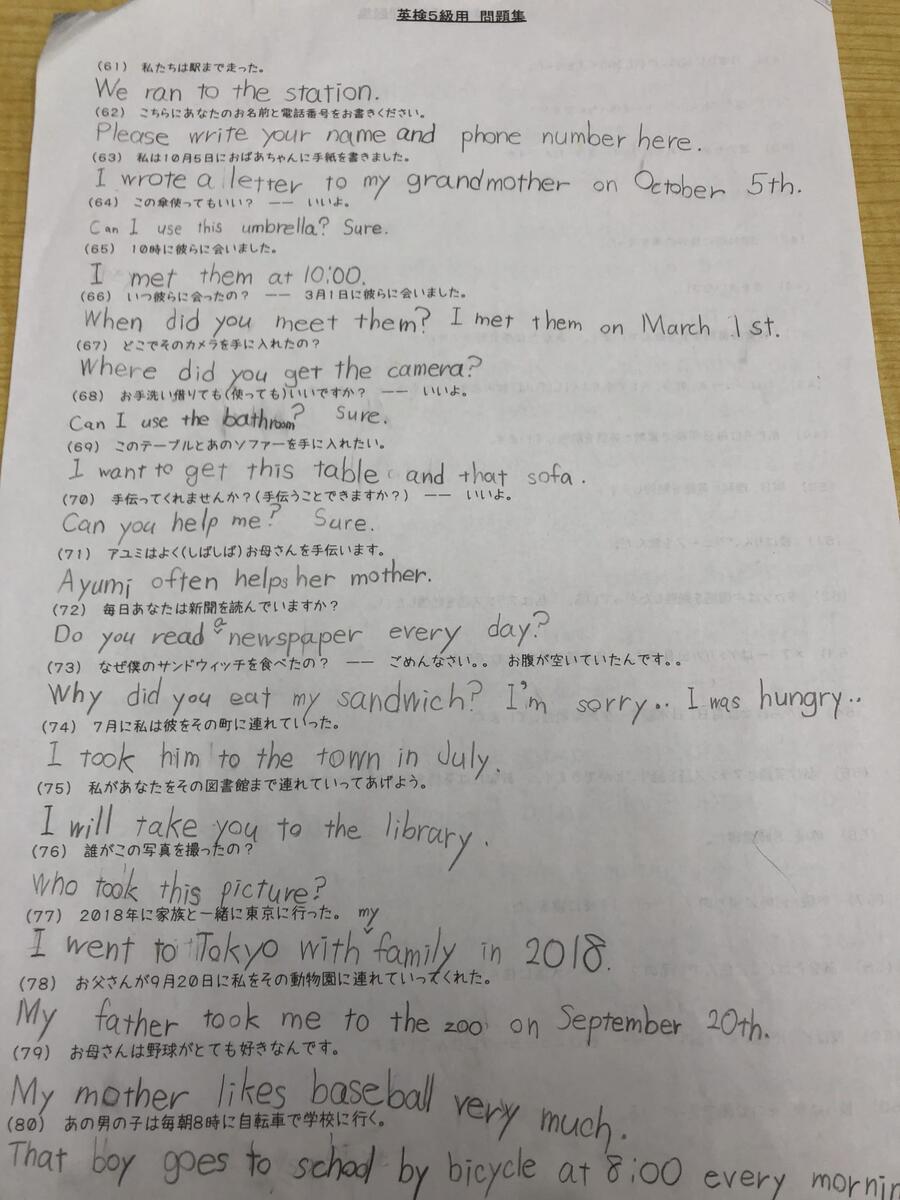 英検5級用 問題集
(61) 私たちは駅まで走った。
We ran to the station.
(62) こちらにあなたのお名前と電話番号をお書きください。
Please write your name and phone number here.
(63) 私は10月5日におばあちゃんに手紙を書きました。
I wrote a letter to my grandmother on October 5th.
(64) この傘使ってもいい? ―― いいよ。
Can I use this umbrella? Sure.
(65) 10時に彼らに会いました。
I met them at 10:00.
(66) いつ彼らに会ったの? ―― 3月1日に彼らに会いました。
When did you meet them? I met them on March 1st.
(67) どこでそのカメラを手に入れたの?
Where did you get the camera?
(68) お手洗い借りても(使っても)いいですか? ―― いいよ。
Can I use the bathroom? Sure.
(69) このテーブルとあのソファーを手に入れたい。
I want to get this table and that sofa.
(70) 手伝ってくれませんか?(手伝うことできますか?) ―― いいよ。
Can you help me? Sure.
(71) アユミはよく(しばしば)お母さんを手伝います。
Ayumi often helps her mother.
(72) 毎日あなたは新聞を読んでいますか?
Do you read a newspaper every day?
(73) なぜ僕のサンドウィッチを食べたの? ―― ごめんなさい。。 お腹が空いていたんです。。
Why did you eat my sandwich? I'm sorry.. I was hungry..
(74) 7月に私は彼をその町に連れていった。
I took him to the town in July.
(75) 私があなたをその図書館まで連れていってあげよう。
I will take you to the library.
(76) 誰がこの写真を撮ったの?
Who took this picture?
(77) 2018年に家族と一緒に東京に行った。
I went to Tokyo with my family in 2018.
(78) お父さんが9月20日に私をその動物園に連れていってくれた。
My father took me to the zoo on September 20th.
(79) お母さんは野球がとても好きなんです。
My mother likes baseball very much.
(80) あの男の子は毎朝8時に自転車で学校に行く。
That boy goes to school by bicycle at 8:00 every mornin